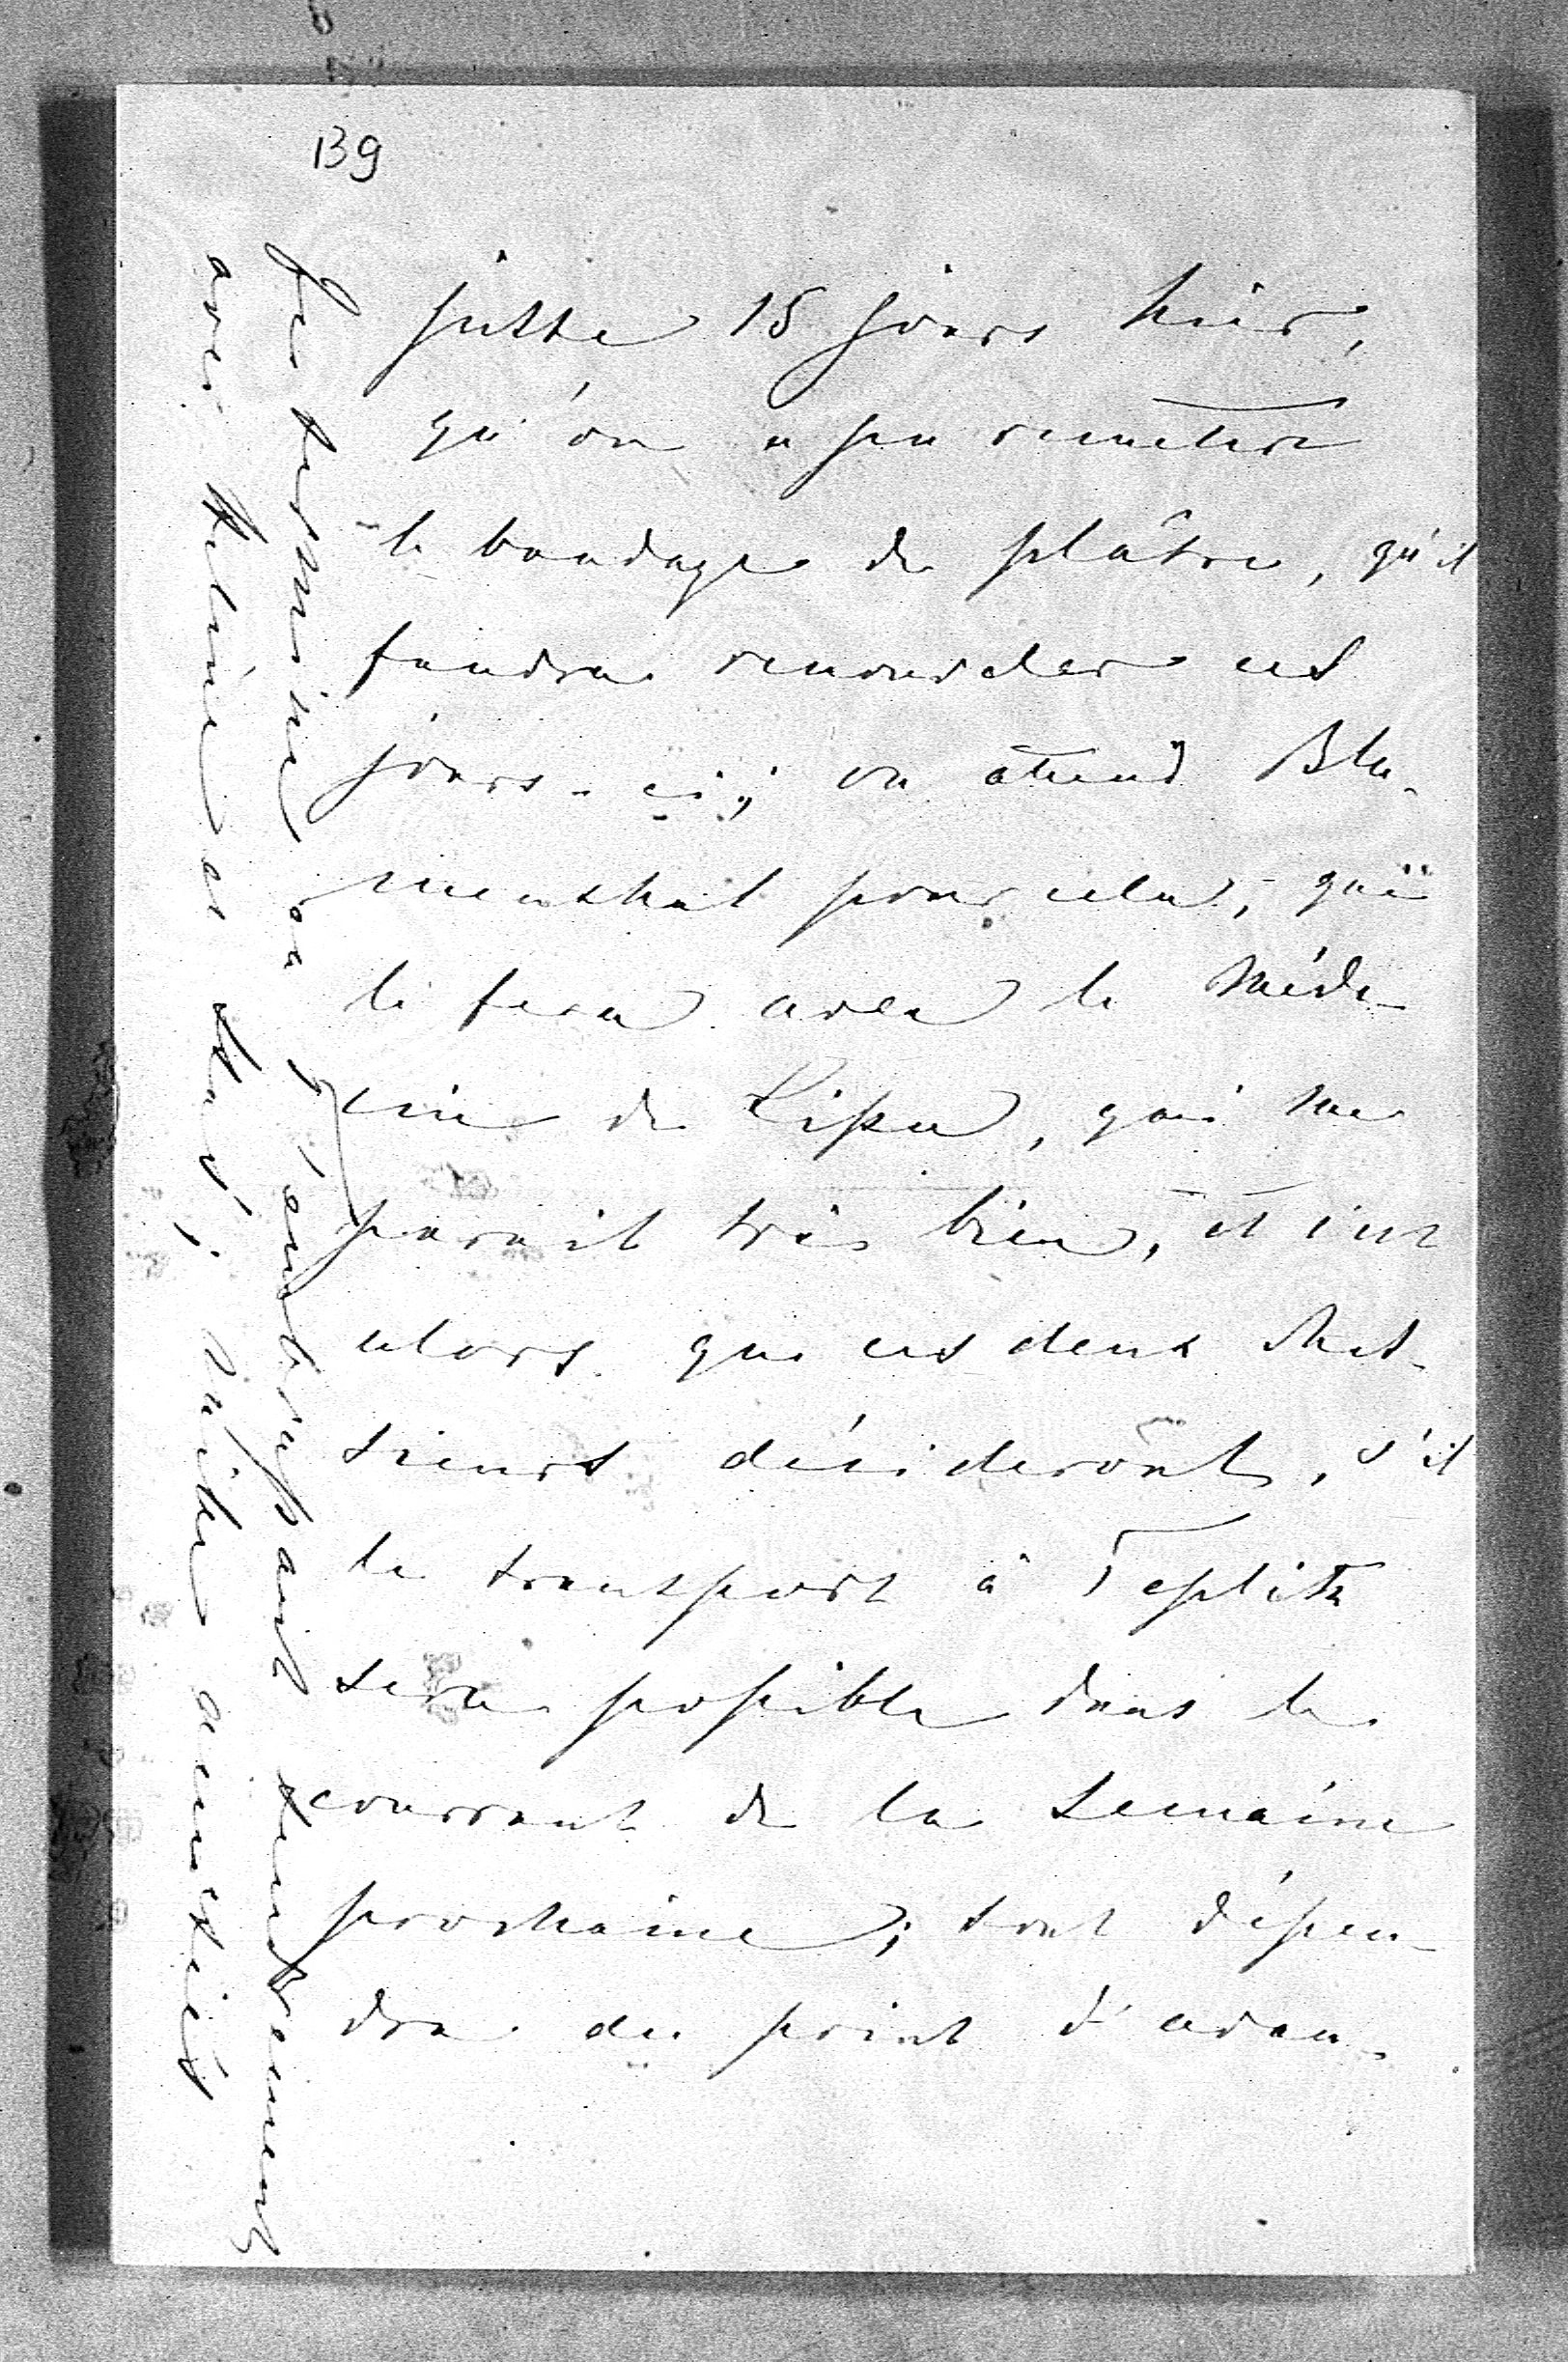 139
juste 15 jours hier,
qu'on a pu remettre
le bandage de plâtre, qu'il
faudra renouveler ces
jours-ci; on attend Blu-
menthal pour cela, qui
le fera avec le Méde-
cin de Lipa, qui me
parait très bien, et c'est
alors que ces deux Mes-
sieurs décideront, s'il
le transport à Teplitz
sera possible dans le
courrant de la semaine
prochaine; tout dépen-
dra du point d'avan-
Je termine en t'embrassant tendrement
avec Hélène et